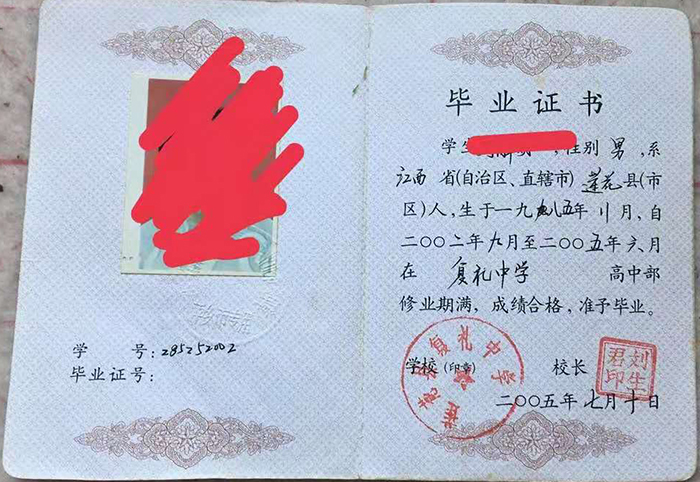 学 号: 285252002
毕业证号:
毕业证书
学生 ,性别 男,系
江西 省(自治区、直辖市) 莲花 县(市
区)人,生于一九八五年 11 月,自
二〇〇二年九月至二〇〇五年六月
在 复礼中学 高中部
修业期满,成绩合格,准予毕业。
学校(印章) 校长
莲花县复礼中学
刘生君印
二〇〇五年七月十日